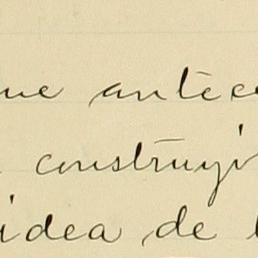 ue antece
construyi
idea de l